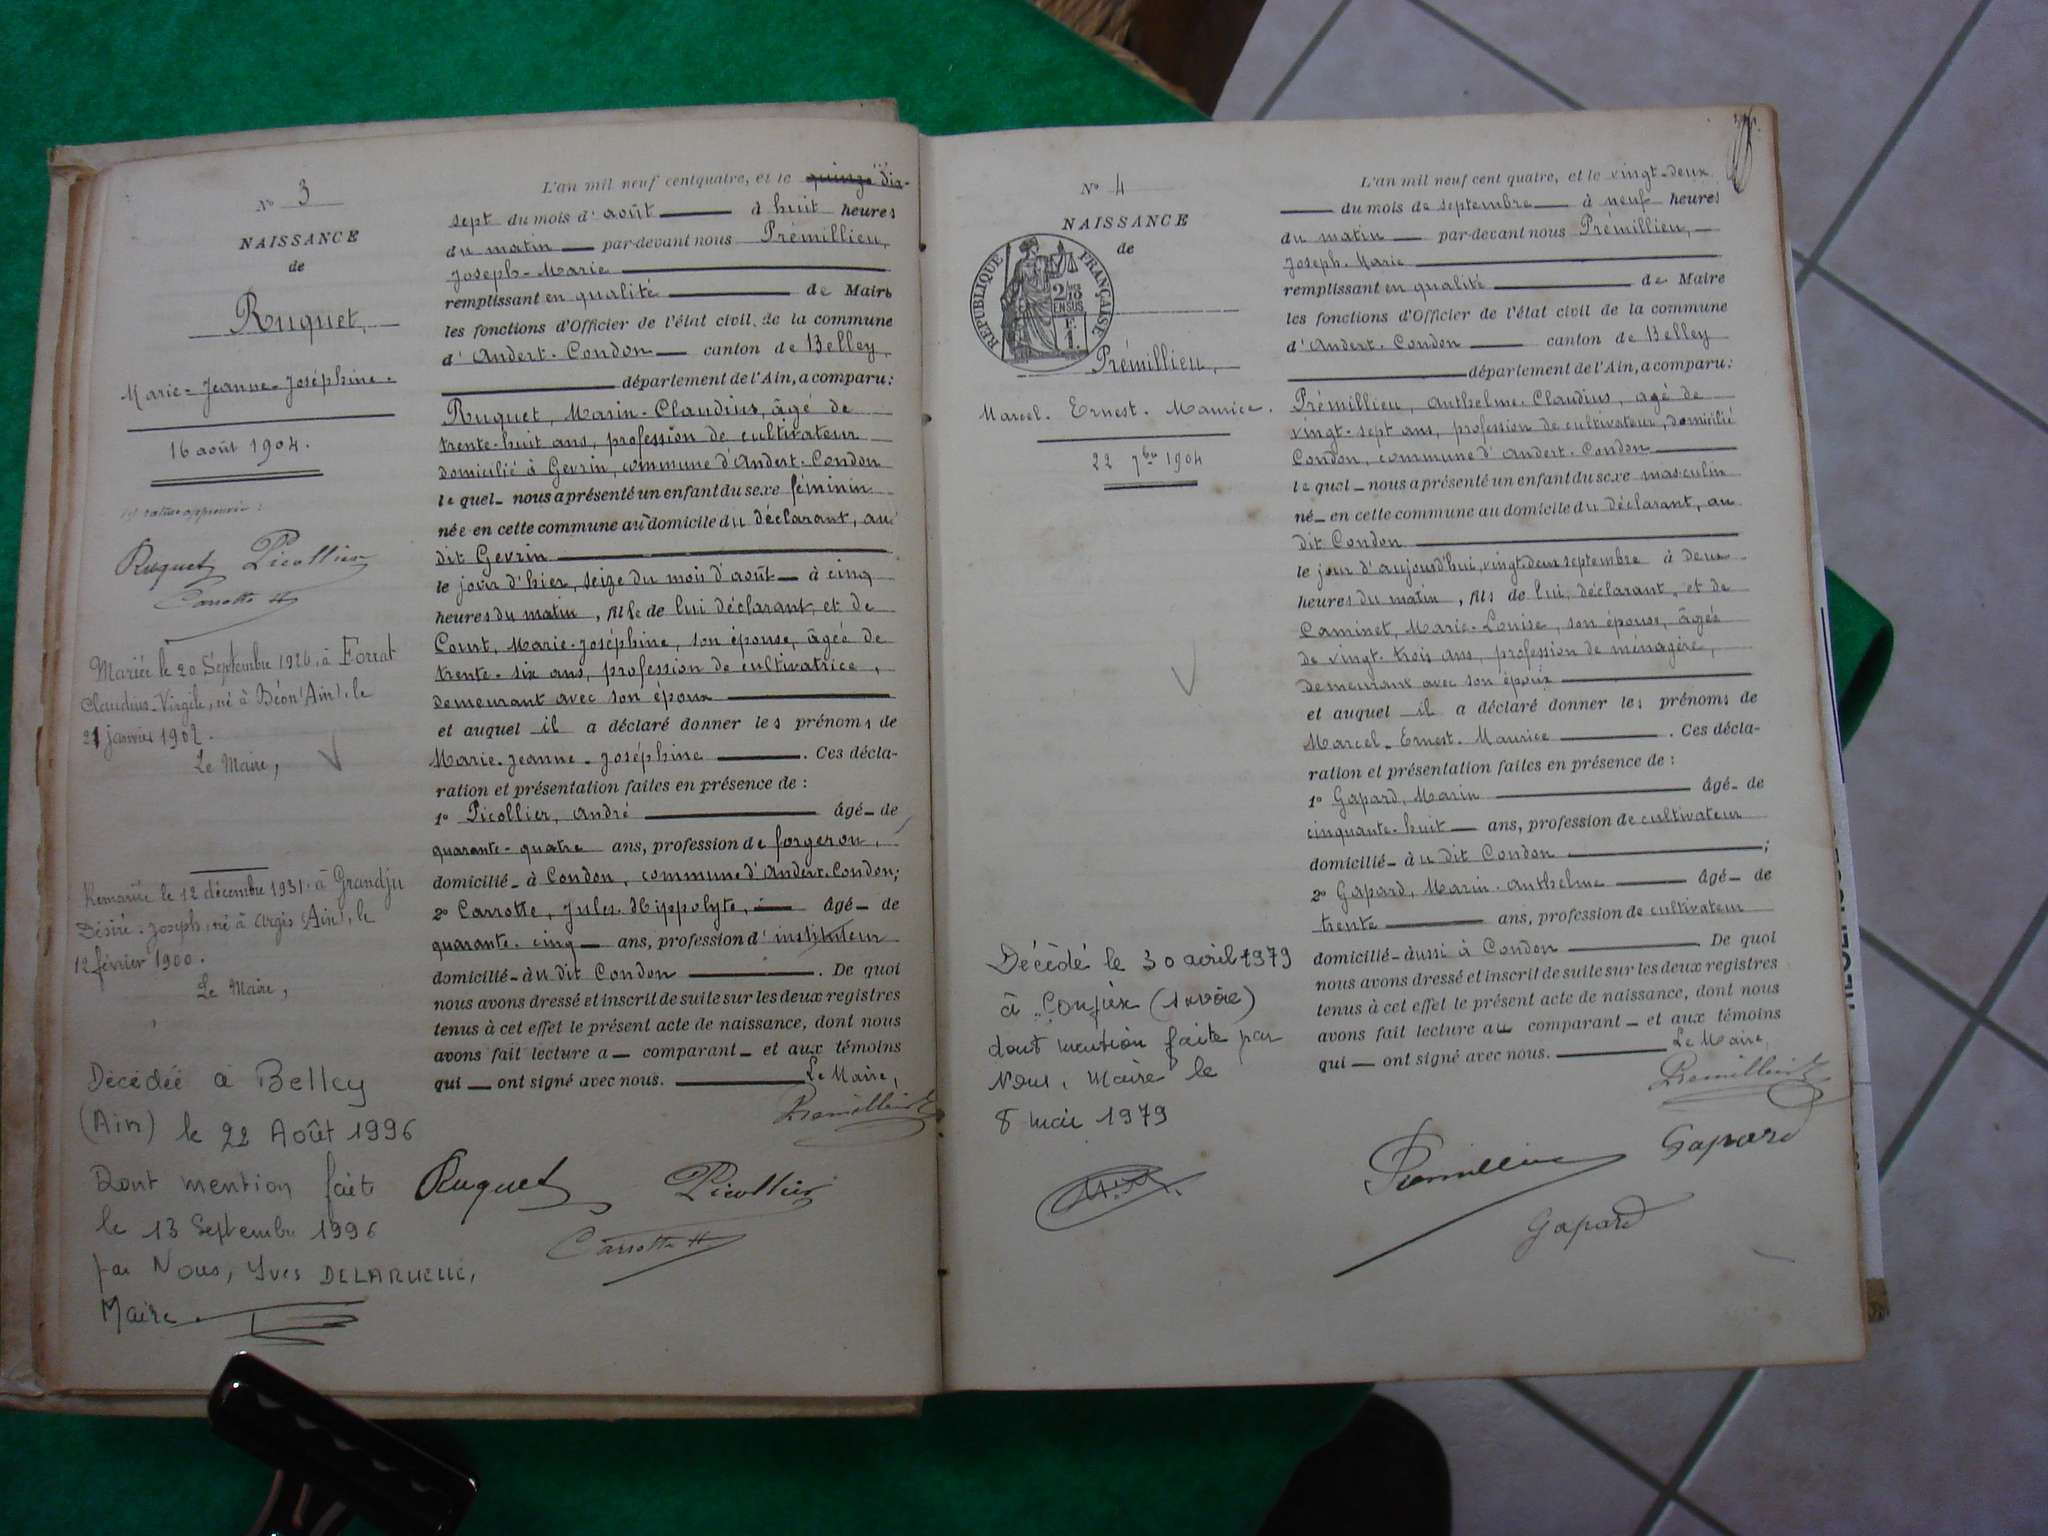 N° 3
NAISSANCE
de
Ruquet,
Marie-Jeanne-Joséphine.
16 août 1904.
Ruquet Picollier
Carrotte H
Mariée le 20 Septembre 1926, à Forrat
Claudius-Virgile, né à Béon (Ain), le
21 janvier 1902.
Le Maire,
Remariée le 12 décembre 1931 à Grandju
Désiré-Joseph, né à Argis (Ain), le
12 février 1900.
Le Maire,
Décédée à Belley
(Ain) le 22 Août 1996
Dont mention faite
le 13 Septembre 1996
par Nous, Yves DELARUELLE,
Maire
L'an mil neuf cent quatre, et le quinze dix-
sept du mois d'août à huit heures
du matin par-devant nous Prémillieu,
Joseph-Marie
remplissant en qualité de Maire
les fonctions d'Officier de l'état civil de la commune
d'Andert-Condon canton de Belley,
département de l'Ain, a comparu :
Ruquet, Marin-Claudius, âgé de
trente-huit ans, profession de cultivateur
domicilié à Gevrin, commune d'Andert-Condon
lequel nous a présenté un enfant du sexe féminin
née en cette commune au domicile du déclarant, au
dit Gevrin
le jour d'hier, seize du mois d'août à cinq
heures du matin, fille de lui déclarant, et de
Court, Marie-Joséphine, son épouse, âgée de
trente-six ans, profession de cultivatrice,
demeurant avec son époux
et auquel il a déclaré donner les prénoms de
Marie-Jeanne-Joséphine. Ces décla-
ration et présentation faites en présence de :
1° Picollier, André âgé de
quarante-quatre ans, profession de forgeron,
domicilié à Condon, commune d'Andert-Condon;
2° Carrotte, Jules-Hippolyte, âgé de
quarante-cinq ans, profession d'instituteur
domicilié au dit Condon. De quoi
nous avons dressé et inscrit de suite sur les deux registres
tenus à cet effet le présent acte de naissance, dont nous
avons fait lecture a comparant et aux témoins
qui ont signé avec nous. Le Maire,
Ruquet Picollier
Carrotte H
N° 4
NAISSANCE
de
RÉPUBLIQUE FRANÇAISE
EN SUS
Prémillieu,
Marcel-Ernest-Maurice.
22 7bre 1904
Décédé le 30 avril 1979
à Conjux (Savoie)
dont mention faite par
Nous, Maire le
8 mai 1979
L'an mil neuf cent quatre, et le vingt-deux
du mois de septembre à neuf heures
du matin par-devant nous Prémillieu,
Joseph-Marie
remplissant en qualité de Maire
les fonctions d'Officier de l'état civil de la commune
d'Andert-Condon canton de Belley
département de l'Ain, a comparu :
Prémillieu, Anthelme-Claudius, âgé de
vingt-sept ans, profession de cultivateur, domicilié
Condon, commune d'Andert-Condon
lequel nous a présenté un enfant du sexe masculin
né en cette commune au domicile du déclarant, au
dit Condon
le jour d'aujourd'hui, vingt-deux septembre à deux
heures du matin, fils de lui déclarant, et de
Caminet, Marie-Louise, son épouse, âgée
de vingt-trois ans, profession de ménagère,
demeurant avec son époux
et auquel il a déclaré donner les prénoms de
Marcel-Ernest-Maurice. Ces décla-
ration et présentation faites en présence de :
1° Gapard, Marin âgé de
cinquante-huit ans, profession de cultivateur
domicilié au dit Condon;
2° Gapard, Marin-Anthelme âgé de
trente ans, profession de cultivateur
domicilié aussi à Condon. De quoi
nous avons dressé et inscrit de suite sur les deux registres
tenus à cet effet le présent acte de naissance, dont nous
avons fait lecture au comparant et aux témoins
qui ont signé avec nous. Le Maire,
Prémillieu
Gapard
Gapard